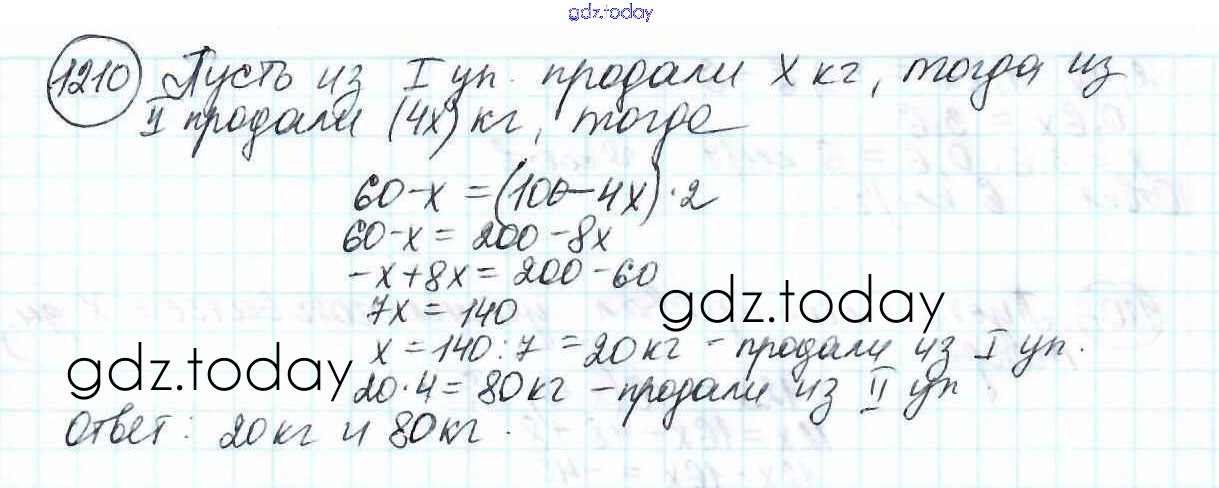 gdz.today
1210 Пусть из I уп. продали x кг, тогда из
II продали (4x) кг, тогда
60-x=(100-4x)·2
60-x=200-8x
-x+8x=200-60
7x=140
gdz.today
x=140:7=20кг - продали из I уп.
gdz.today
20·4=80кг - продали из II уп.
Ответ: 20кг и 80кг.